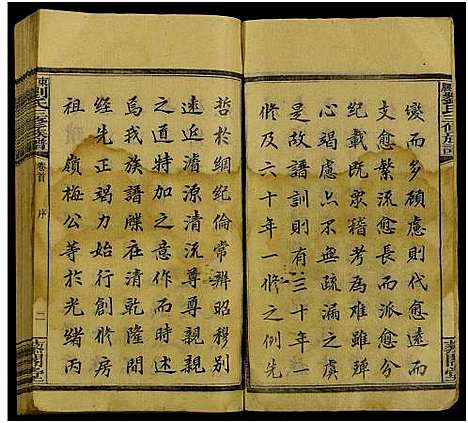 變而多頻慮則代愈遠而
支愈繁流愈長而派愈分
紀載既衆稽考為難雖殫
心竭慮亦無疏漏之虞
是故譜訓則有三十年一
修及六十年一修之例先
哲於綱紀倫常辨昭穆別
遠近清源清流尊尊親親
之道特加之意作而時述
焉我族譜牒在清乾隆間
經先正竭力始行創修房
祖嶺梅公等於光緒丙
劉氏三修族譜
卷首
序
二